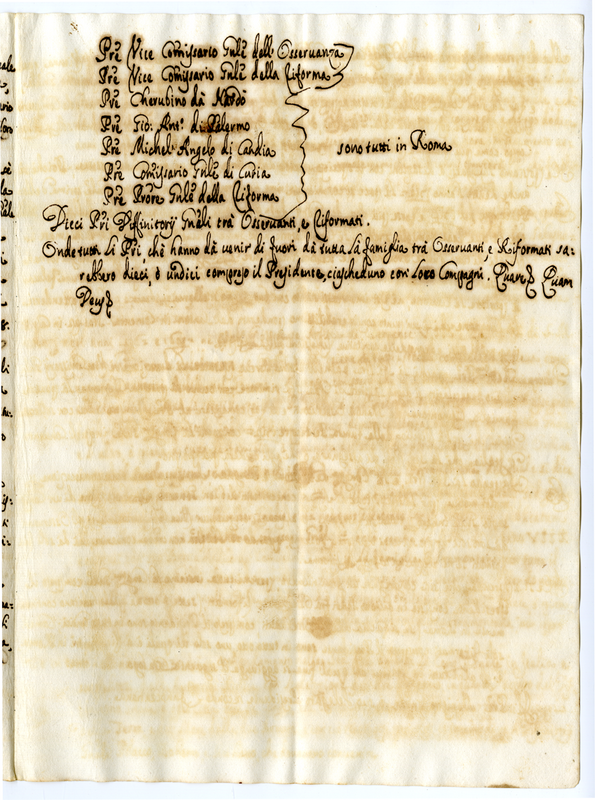 Prē Vice Com̃issario Gnl̃e dell' Osseruanza
Prē Vice Com̃issario Gnl̃e della Riforma
Prē Cherubino dà Nardò
Prē Gio: Ant.º di Palermo
Prē Michel' Angelo di Candia sono tutti in Roma
Prē Com̃issario Gnl̃e di Curia
Prē Prore Gnl̃e della Riforma
Dieci Pri Diffinitorÿ Gnãli trà Osseruanti, e Riformati.
Onde tutti li Pri, chè hanno dà uenir di fuori dà tutta la famiglia trà Osseruanti, e Riformati sa:
rebbero dieci, ò undici compreso il Presidente, ciascheduno con loro Compagni. Quare Quam
Deus